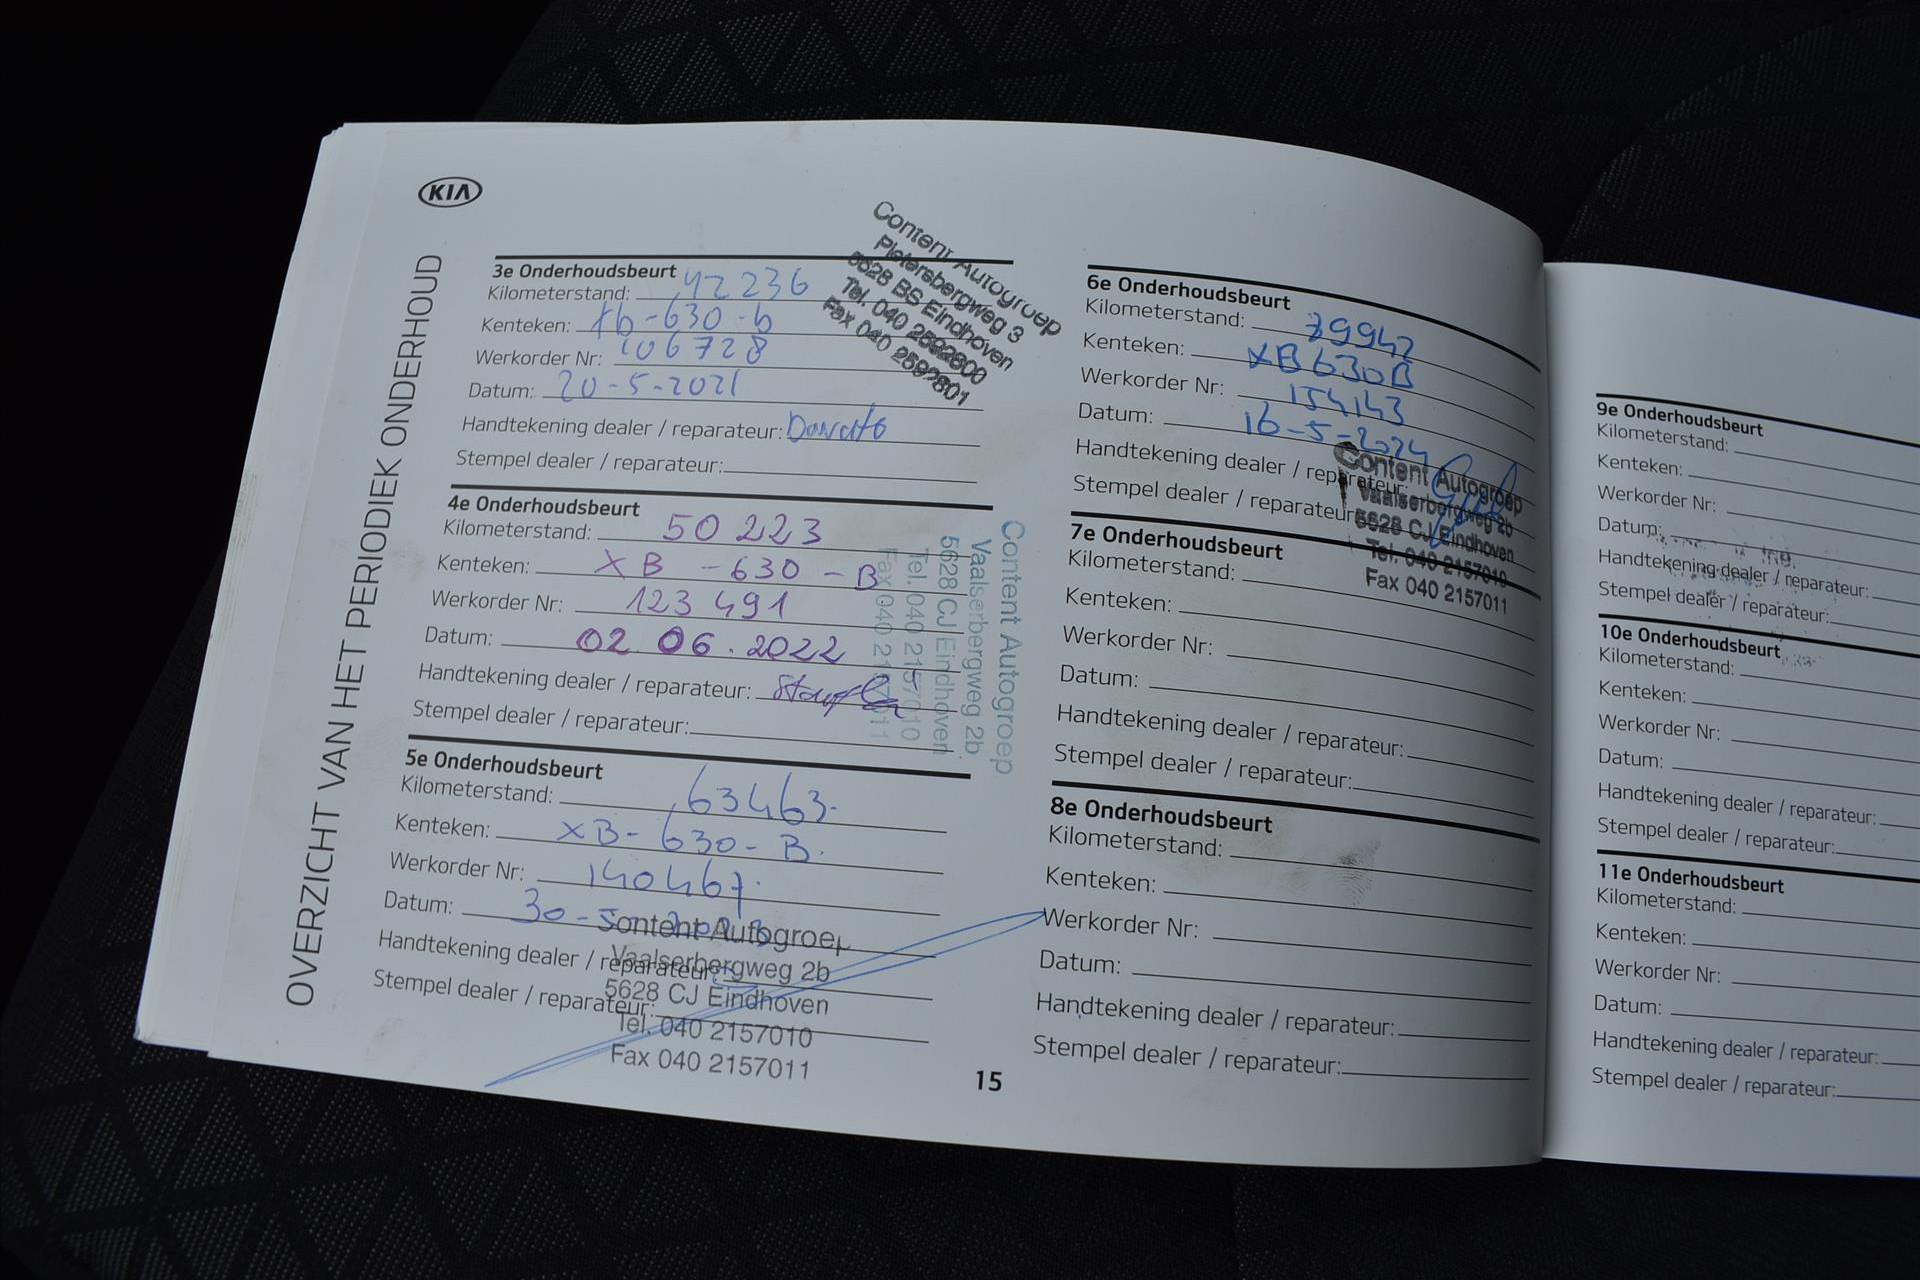 KIA
OVERZICHT VAN HET PERIODIEK ONDERHOUD
3e Onderhoudsbeurt
Kilometerstand: 42236
Kenteken: Xb-630-b
Werkorder Nr: 106728
Datum: 20-5-2021
Handtekening dealer / reparateur: Donato
Stempel dealer / reparateur:
Content Autogroep
Pietersbergweg 3
5628 BS Eindhoven
Tel. 040 2592800
Fax 040 2592801
4e Onderhoudsbeurt
Kilometerstand: 50 223
Kenteken: XB - 630 - B
Werkorder Nr: 123 491
Datum: 02.06.2022
Handtekening dealer / reparateur:
Stempel dealer / reparateur:
Content Autogroep
Vaalserbergweg 2b
5628 CJ Eindhoven
Tel. 040 2157010
Fax 040 2157011
5e Onderhoudsbeurt
Kilometerstand: 63463.
Kenteken: XB - 630 - B.
Werkorder Nr: 140467.
Datum: 30-5-2023
Handtekening dealer / reparateur:
Stempel dealer / reparateur:
Content Autogroep
Vaalserbergweg 2b
5628 CJ Eindhoven
Tel. 040 2157010
Fax 040 2157011
15
6e Onderhoudsbeurt
Kilometerstand: 79942
Kenteken: XB630B
Werkorder Nr: 154143
Datum: 16-5-2024
Handtekening dealer / reparateur:
Stempel dealer / reparateur:
Content Autogroep
Vaalserbergweg 2b
5628 CJ Eindhoven
Tel. 040 2157010
Fax 040 2157011
7e Onderhoudsbeurt
Kilometerstand:
Kenteken:
Werkorder Nr:
Datum:
Handtekening dealer / reparateur:
Stempel dealer / reparateur:
8e Onderhoudsbeurt
Kilometerstand:
Kenteken:
Werkorder Nr:
Datum:
Handtekening dealer / reparateur:
Stempel dealer / reparateur:
9e Onderhoudsbeurt
Kilometerstand:
Kenteken:
Werkorder Nr:
Datum:
Handtekening dealer / reparateur:
Stempel dealer / reparateur:
10e Onderhoudsbeurt
Kilometerstand:
Kenteken:
Werkorder Nr:
Datum:
Handtekening dealer / reparateur:
Stempel dealer / reparateur:
11e Onderhoudsbeurt
Kilometerstand:
Kenteken:
Werkorder Nr:
Datum:
Handtekening dealer / reparateur:
Stempel dealer / reparateur: